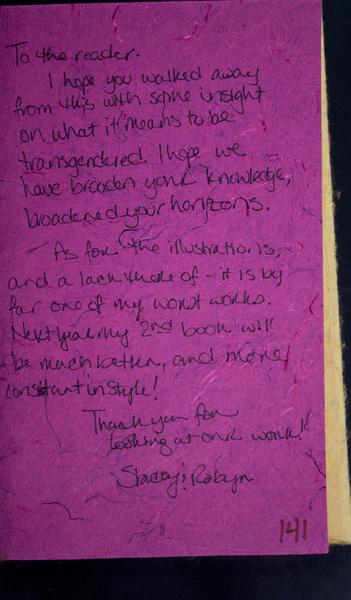 To the reader.
I hope you walked away
from this with some insight
on what it means to be
transgendered. I hope we
have broaden your knowledge,
broadened your horizons.
As for the illustrations,
and a lack there of - it is by
far one of my worst works.
Next year my 2nd book will
be much better, and more
constant in style!
Thank you for
looking at our work!
Stacey & Robyn
141